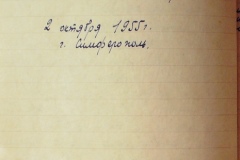 2 октября 1955г.
г. Симферополь.